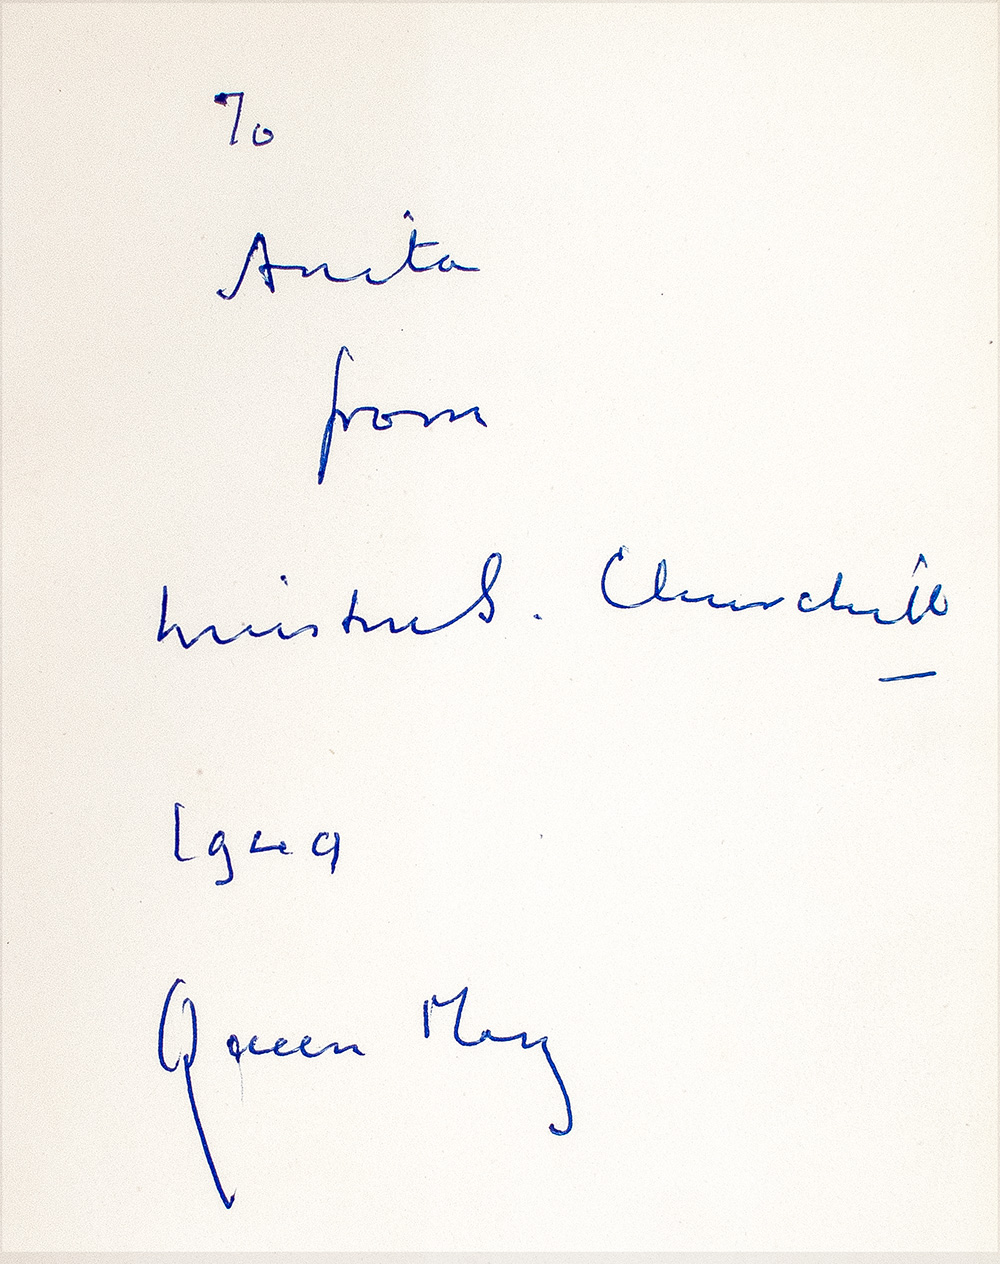 To
Anita
from
Winston S. Churchill
1949
Queen Mary